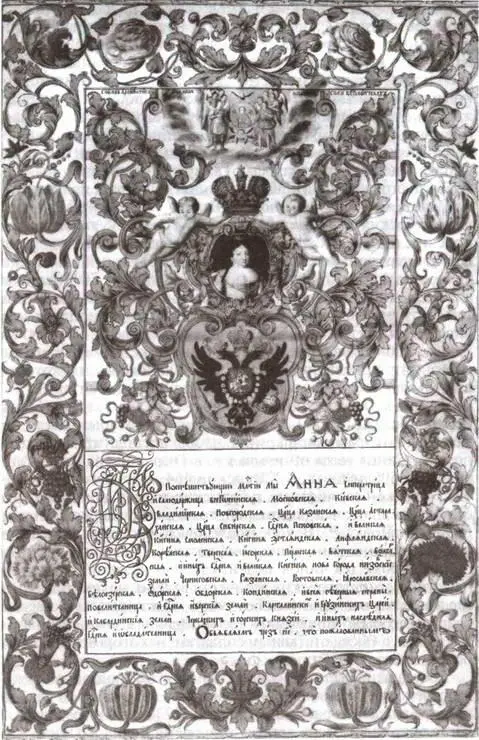 Поспѣшествующею милостїю Мы АННА Императрица
и самодержица всероссїйская. Московская. Кїевская.
Владимїрская. Новгородская. Царица Казанская. Царица Астра
ханская. Царица Сибирская. Гдрня Псковская. и великая
Княгиня Смоленская. Княгиня Эстляндская. Лифляндская.
Корѣлская. Тверская. Югорская. Пермская. Вятская. Болгар
ская. и иныхъ Гдрня и великая Княгиня Нова города низовскїе
земли. Черниговская. Рязанская. Ростовская. Ярославская.
Бѣлоозерская. Удорская. Обдорская. Кондинская. и всея сѣверныя страны
Повелителница. и Гдрня Иверскїя земли. Карталинскихъ и Грузинскихъ Царей.
и Кабардинскїя земли. Черкаскихъ и горскихъ Князей. и иныхъ наслѣдная
Гдрня и обладателница. Объявляемъ чрезъ сїе, что пожалованнымъ